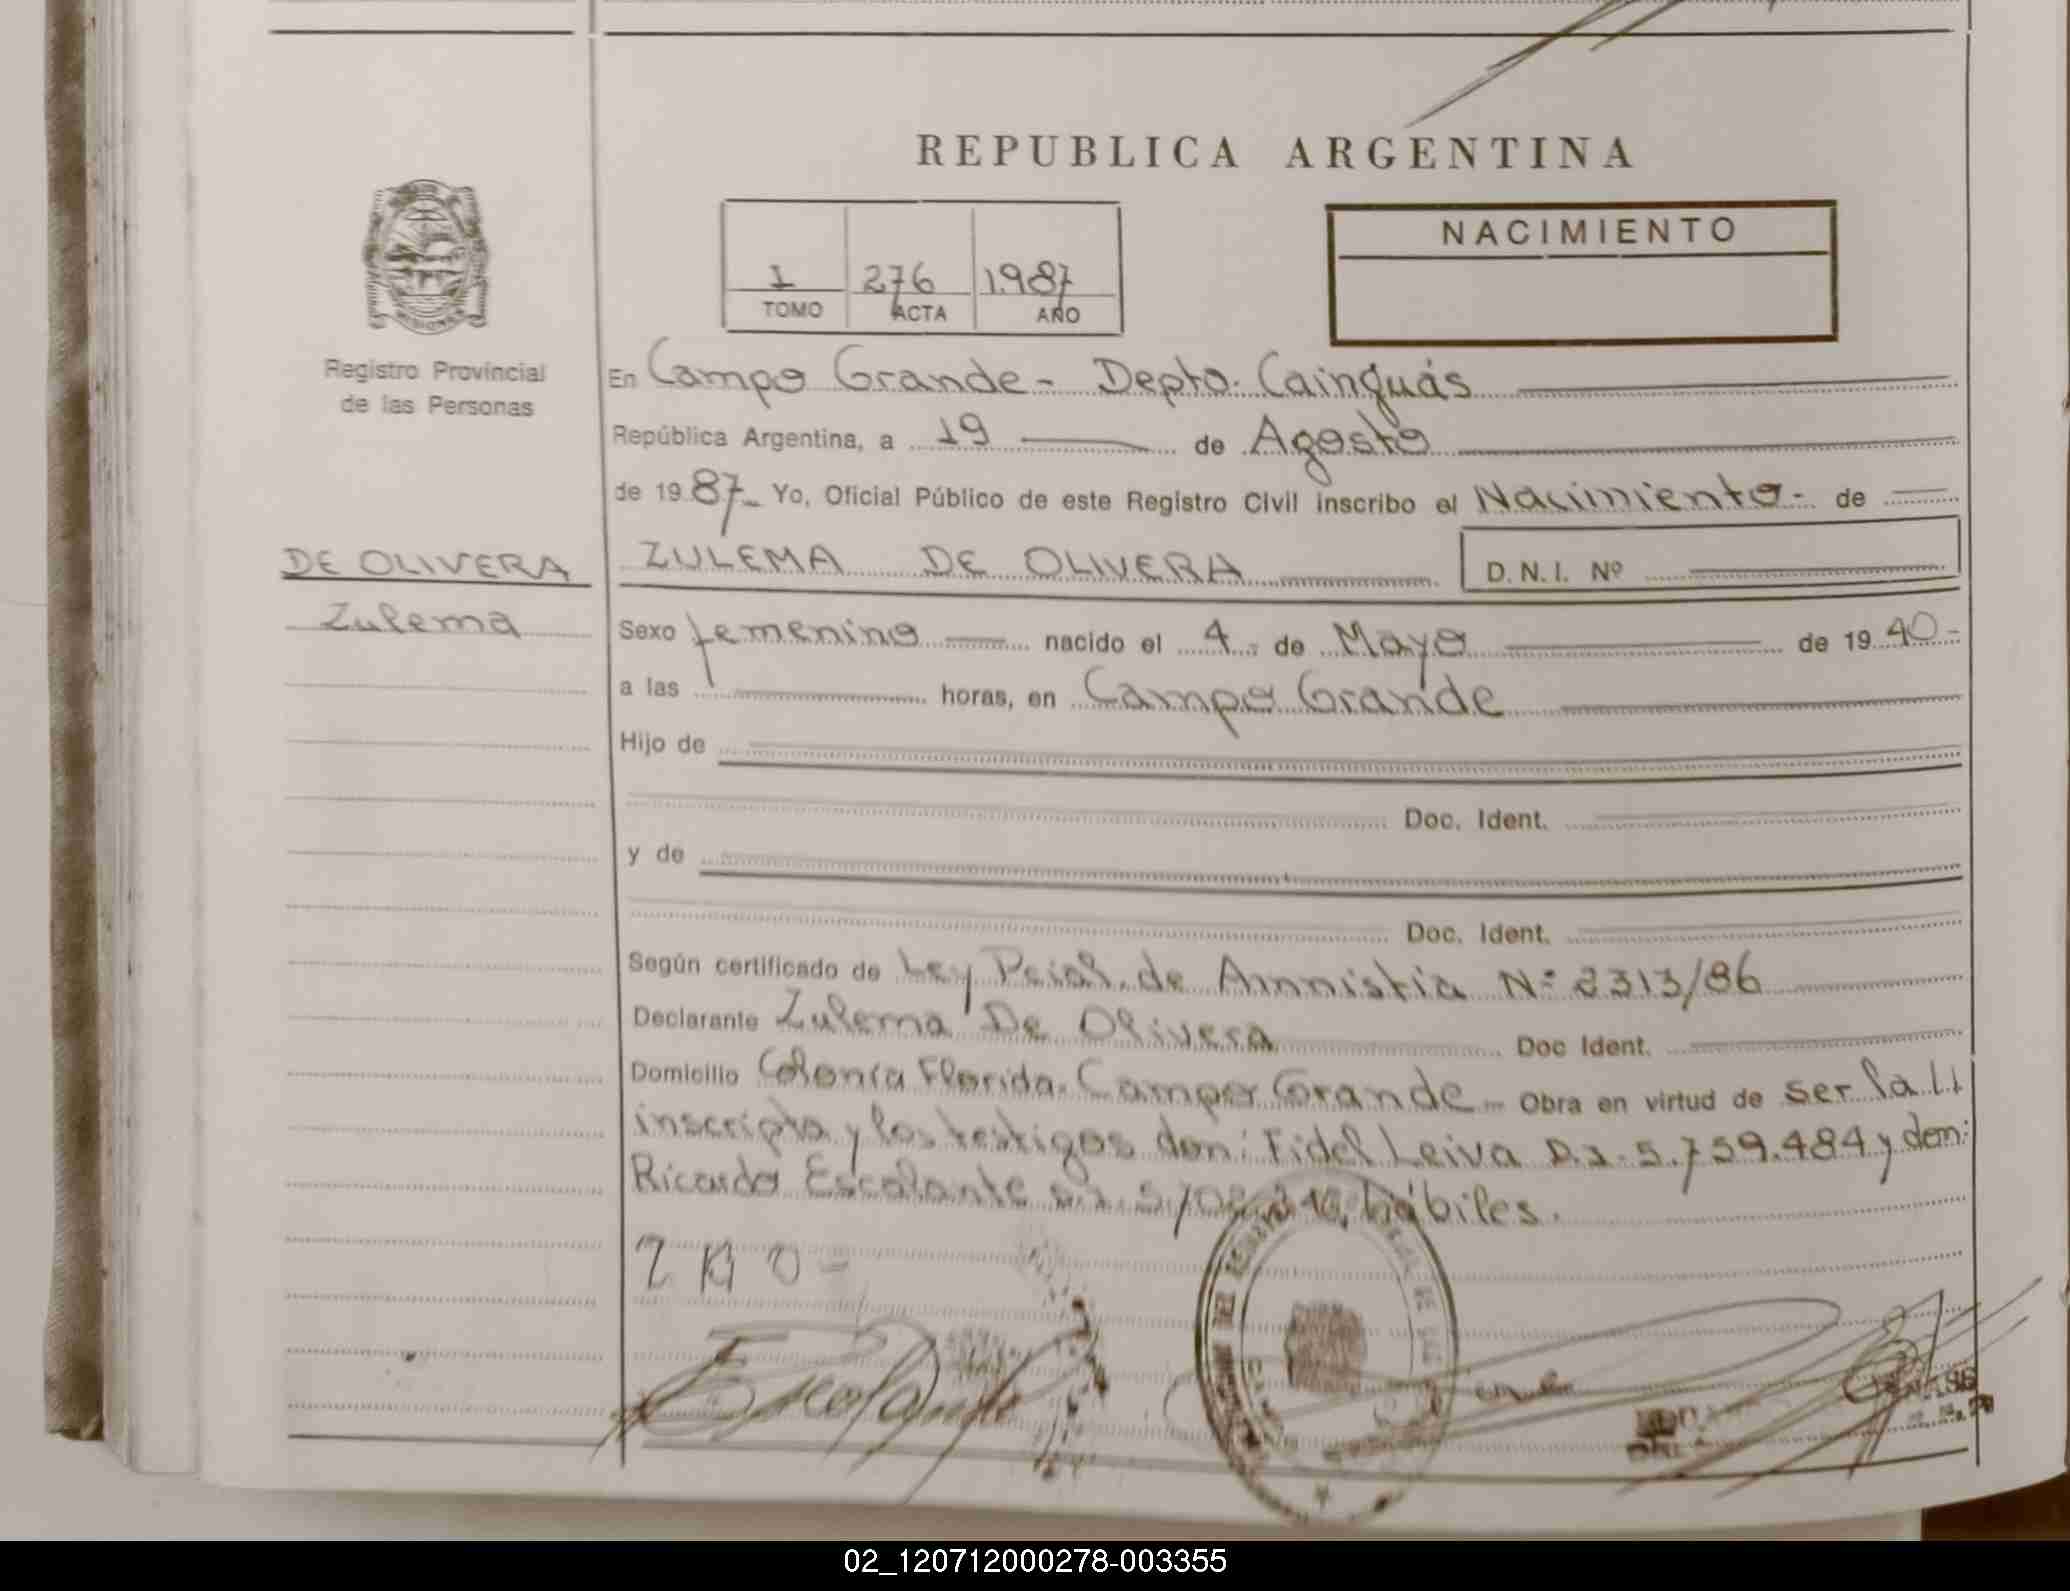 REPUBLICA ARGENTINA
NACIMIENTO
I 276 1.987
TOMO ACTA AÑO
MISIONES
Registro Provincial
de las Personas
En Campo Grande - Depto. Cainguás
República Argentina, a 19 de Agosto
de 1987- Yo, Oficial Público de este Registro Civil inscribo el Nacimiento - de
DE OLIVERA
Zulema
ZULEMA DE OLIVERA D.N.I. Nº
Sexo femenino nacido el 4 - de Mayo de 1940 -
a las horas, en Campo Grande
Hijo de
Doc. Ident.
y de
Doc. Ident.
Según certificado de Ley Pcial. de Amnistia Nº 2313/86
Declarante Zulema De Olivera Doc Ident.
Domicilio Colonia Florida. Campo Grande - Obra en virtud de ser la
inscripta y los testigos don: Fidel Leiva D.I. 5.759.484 y don:
Ricardo Escalante hábiles.
Escalante
02_120712000278-003355